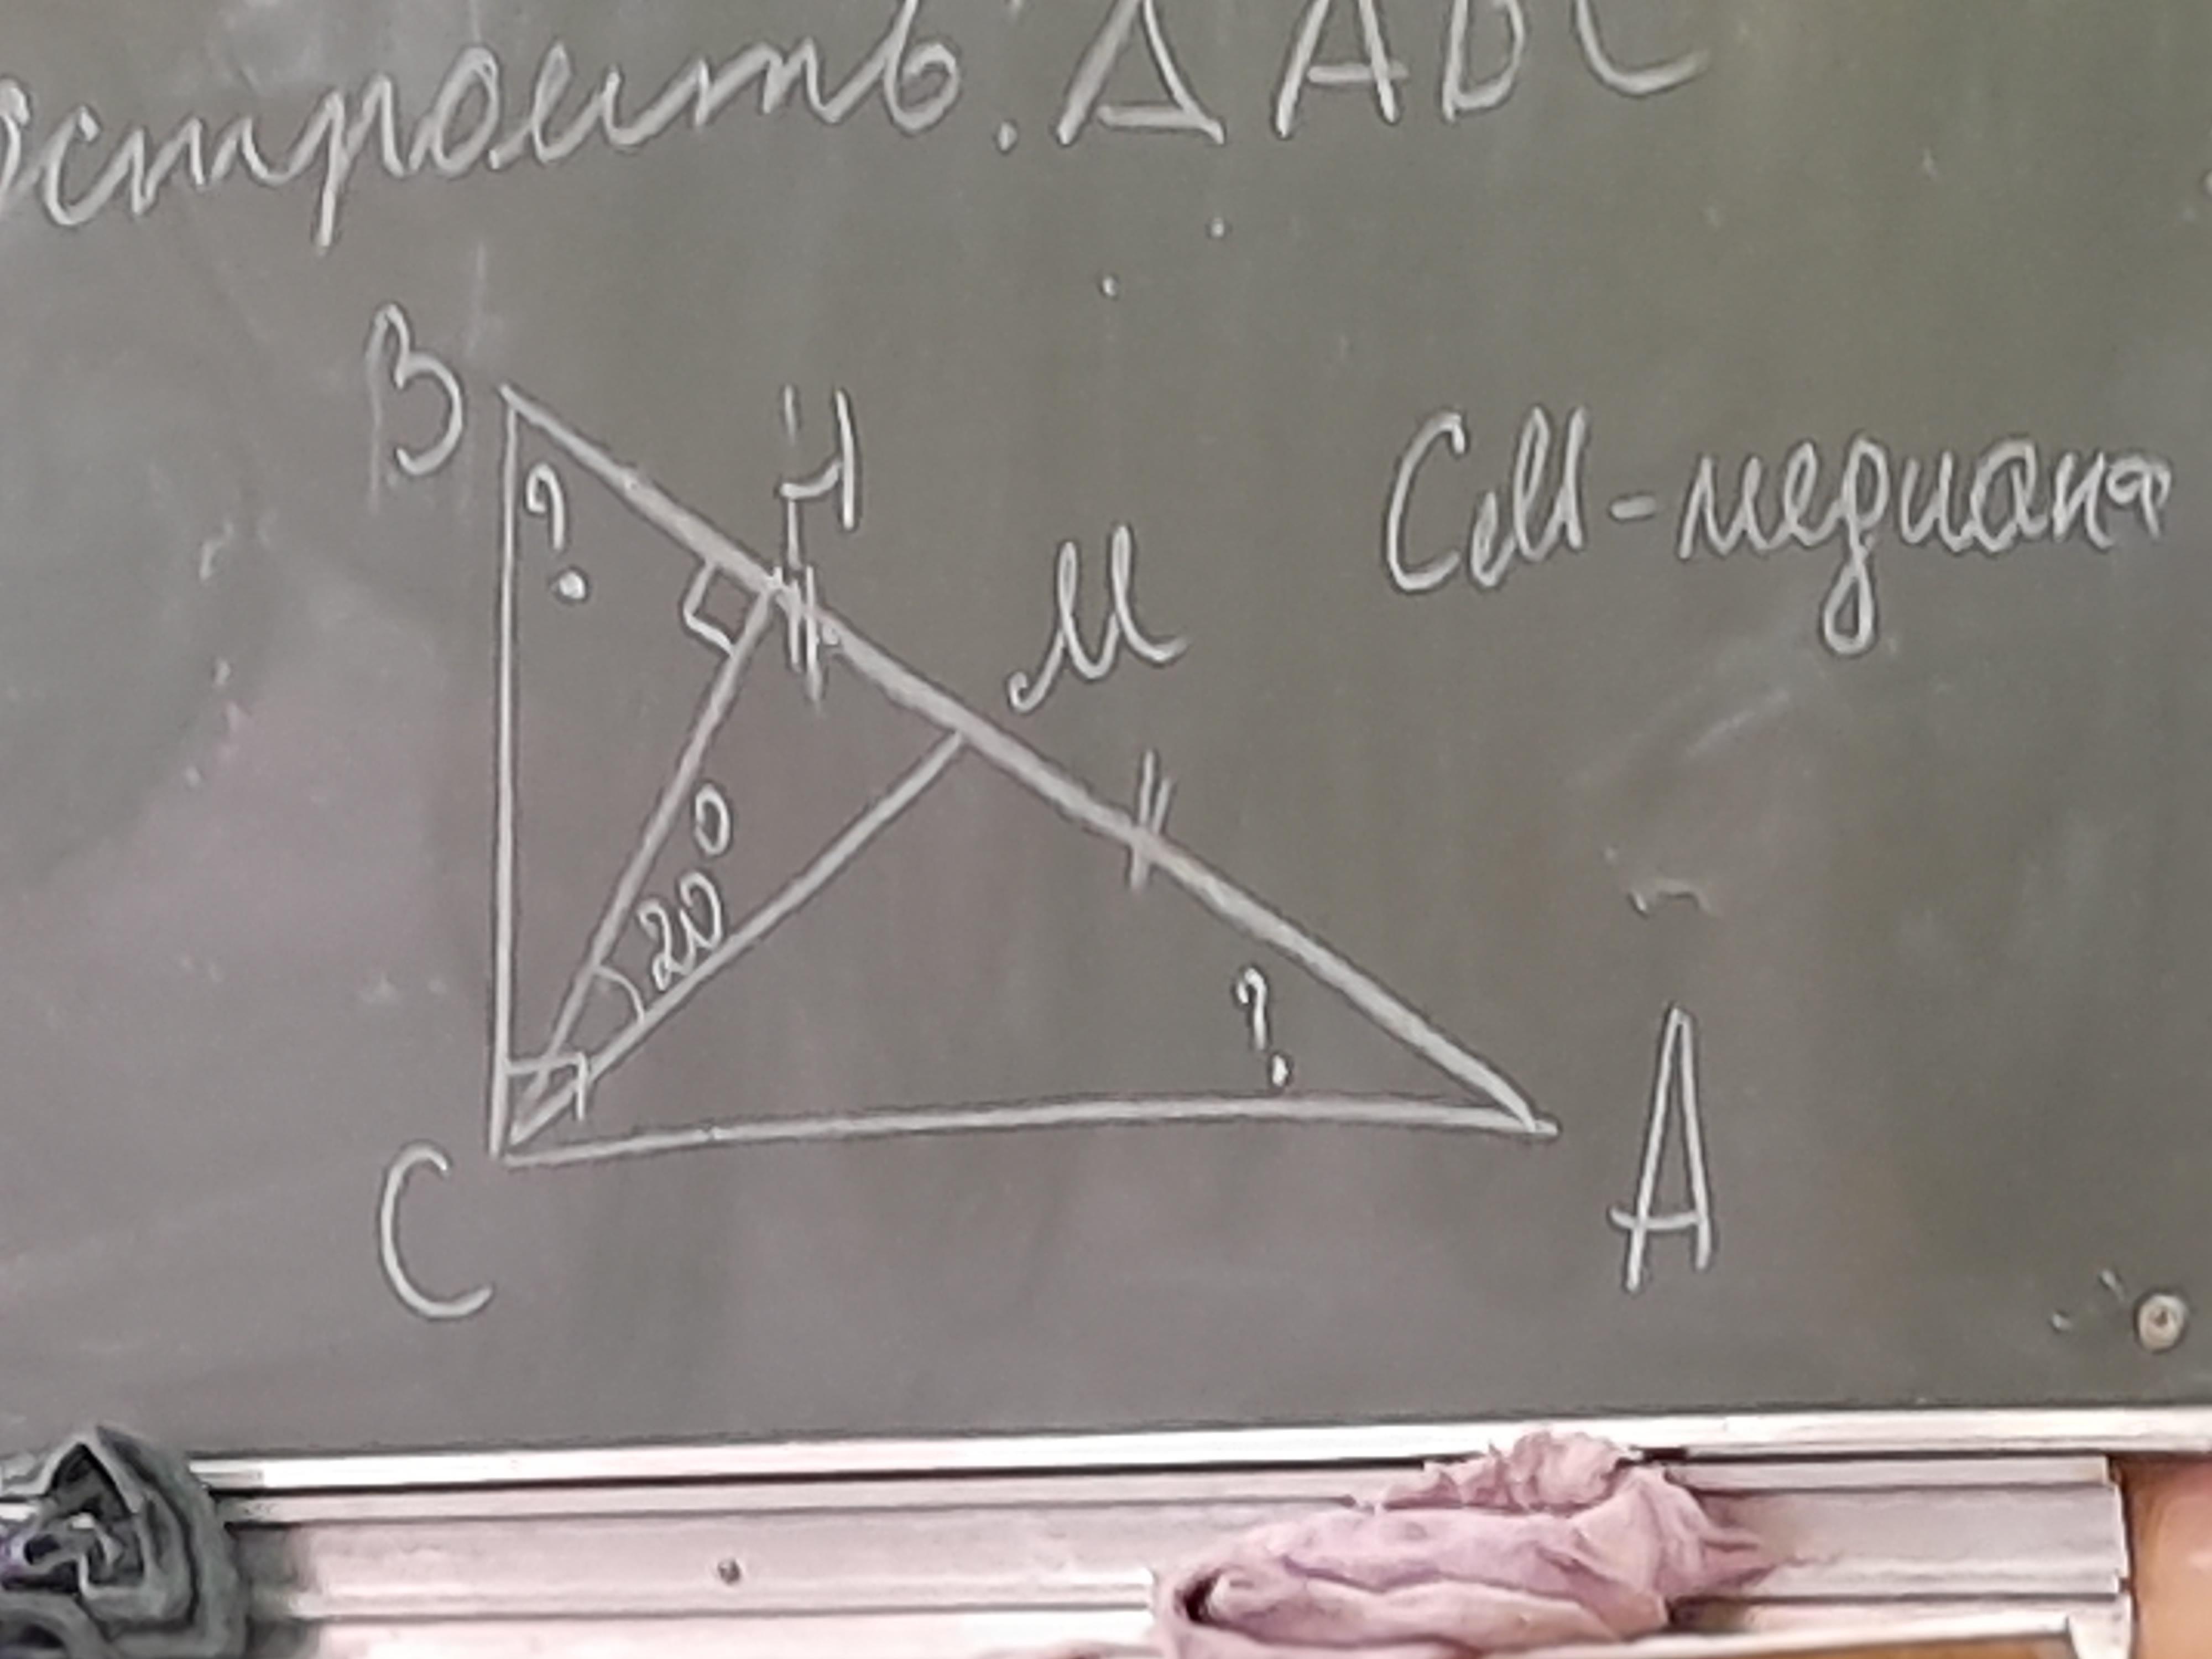 остроить. △ ABC
B
?
H
M
CM-медиана
20°
?
C
A